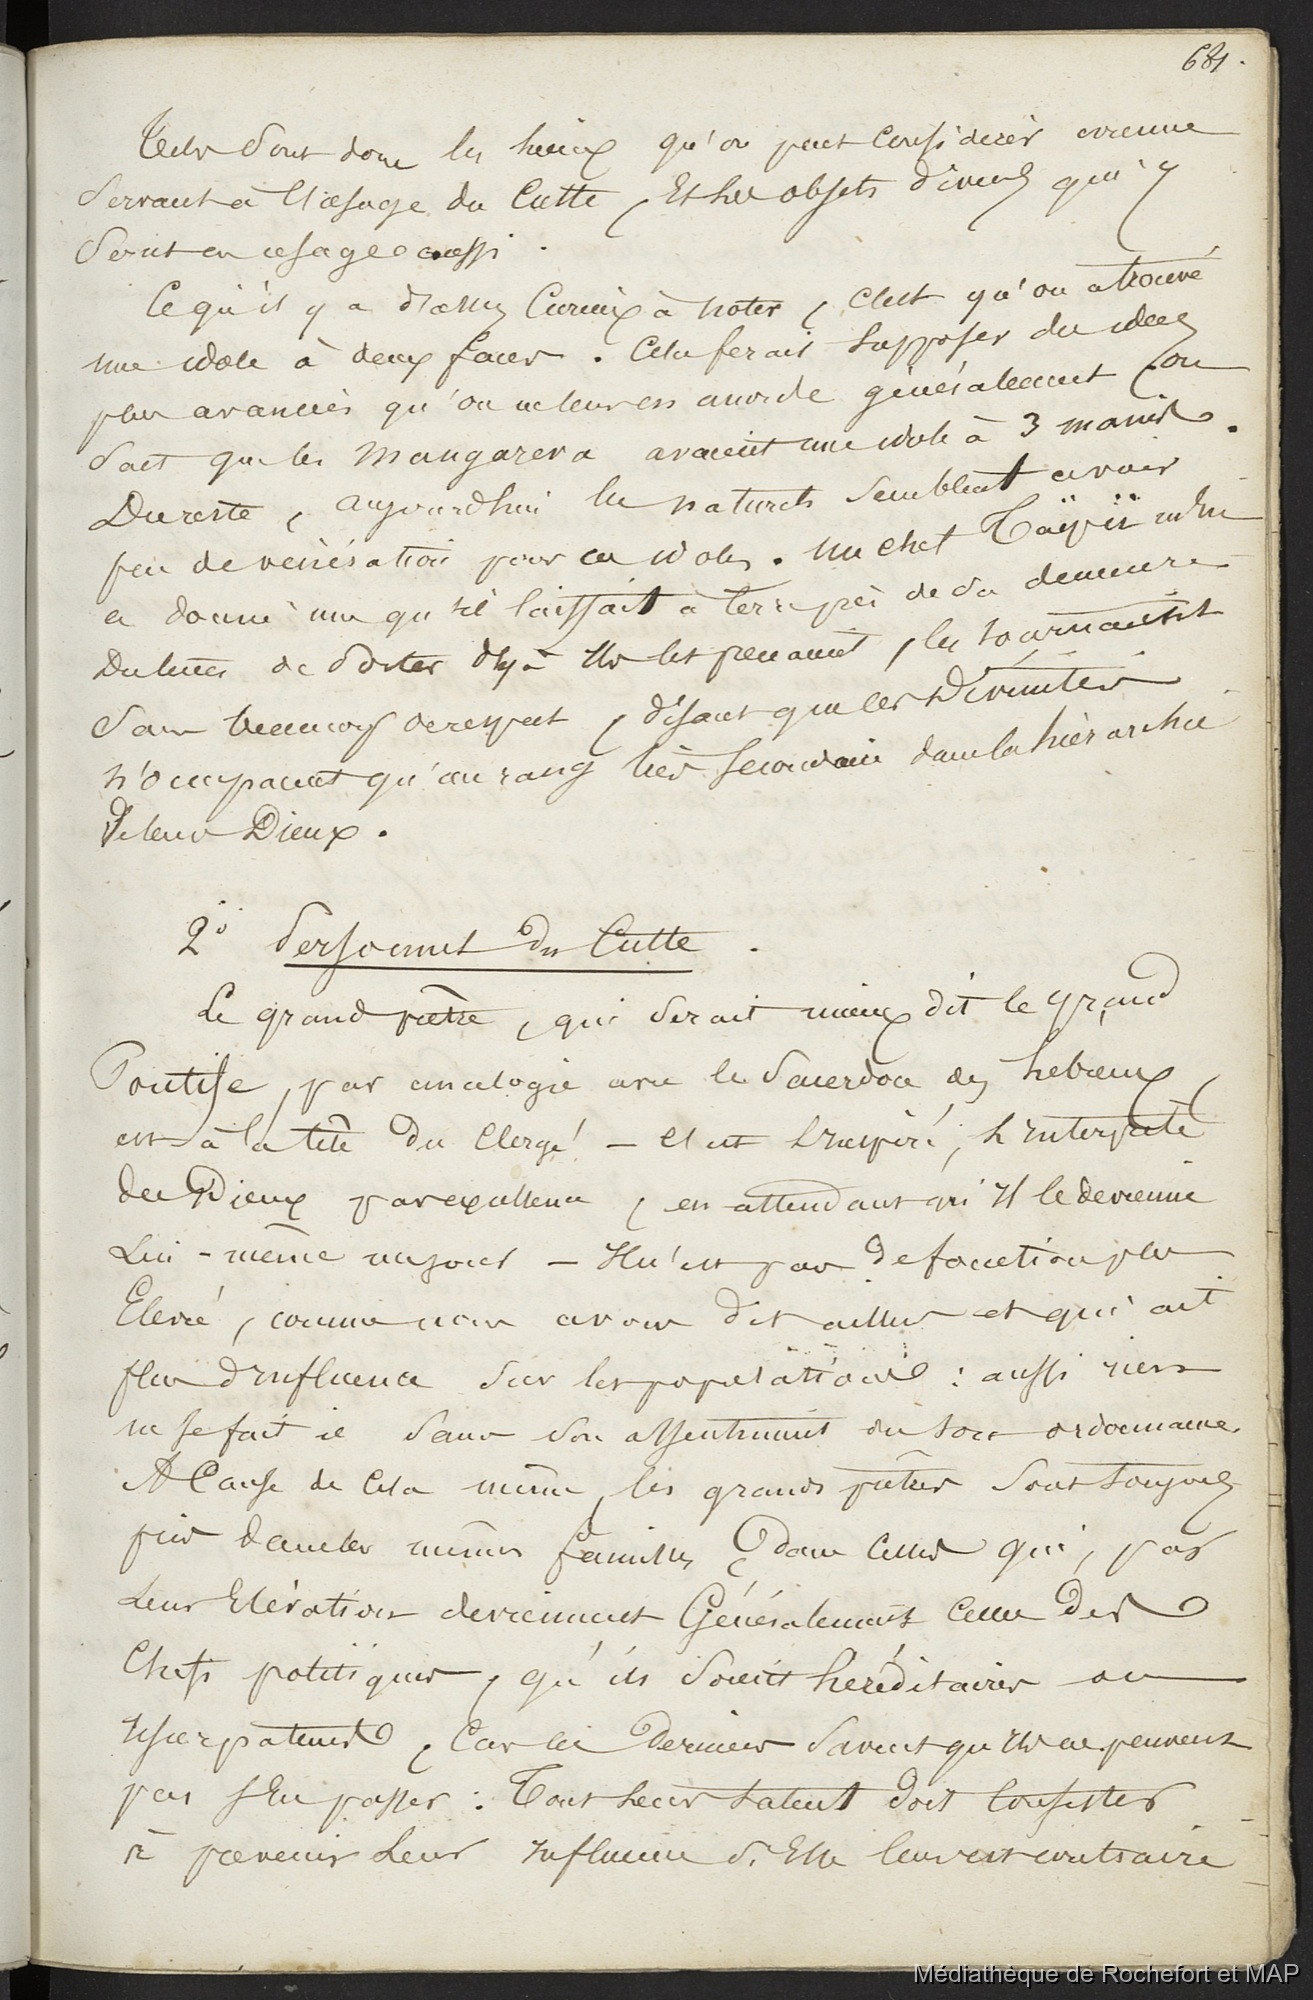 681.
Tels sont donc les lieux qu'on peut considérer comme
servant à l'usage du Culte, Et les objets divers qui y
sont en usage aussi.
Ce qu'il y a d'assez Curieux à noter, c'est qu'on a trouvé
une idole à deux faces. Cela ferait supposer des idées
plus avancées qu'on ne leur en accorde généralement, on
sait que les Mangareva avaient une idole à 3 mains.
Du reste, aujourd'hui les naturels semblent avoir
peu de vénération pour ces idoles. Un chef Taïpii
a donné une qu'il laissait à terre près de sa demeure
Ils les prenaient, les tournaient
sans beaucoup de respect, disant que ces Divinités
n'occupaient qu'un rang très secondaire dans la hiérarchie
de leurs Dieux.
2° Personnel du Culte.
Le grand prêtre, qui serait mieux dit le grand
Pontife, par analogie avec le Sacerdoce des hébreux,
est à la tête du Clergé – C'est L'Inspiré, L'Interprète
des Dieux par excellence, en attendant qu'Il le devienne
Lui-même un jour – Il n'est pas de fonction plus
Elevée, comme nous avons dit ailleurs et qui ait
plus d'Influence sur les populations : aussi rien
ne se fait il sans son assentiment ou son ordonnance.
A Cause de Cela même, les grands prêtres sont toujours
pris dans les mêmes familles, & dans celles qui, par
Leur Elévation deviennent Généralement Celles Des
Chefs politiques, qu'ils soient héréditaires ou
Usurpateurs, Car ces Derniers savent qu'Ils ne peuvent
pas s'En passer : Tout leur talent doit Consister
à prévenir Leur Influence si Elle leur est contraire